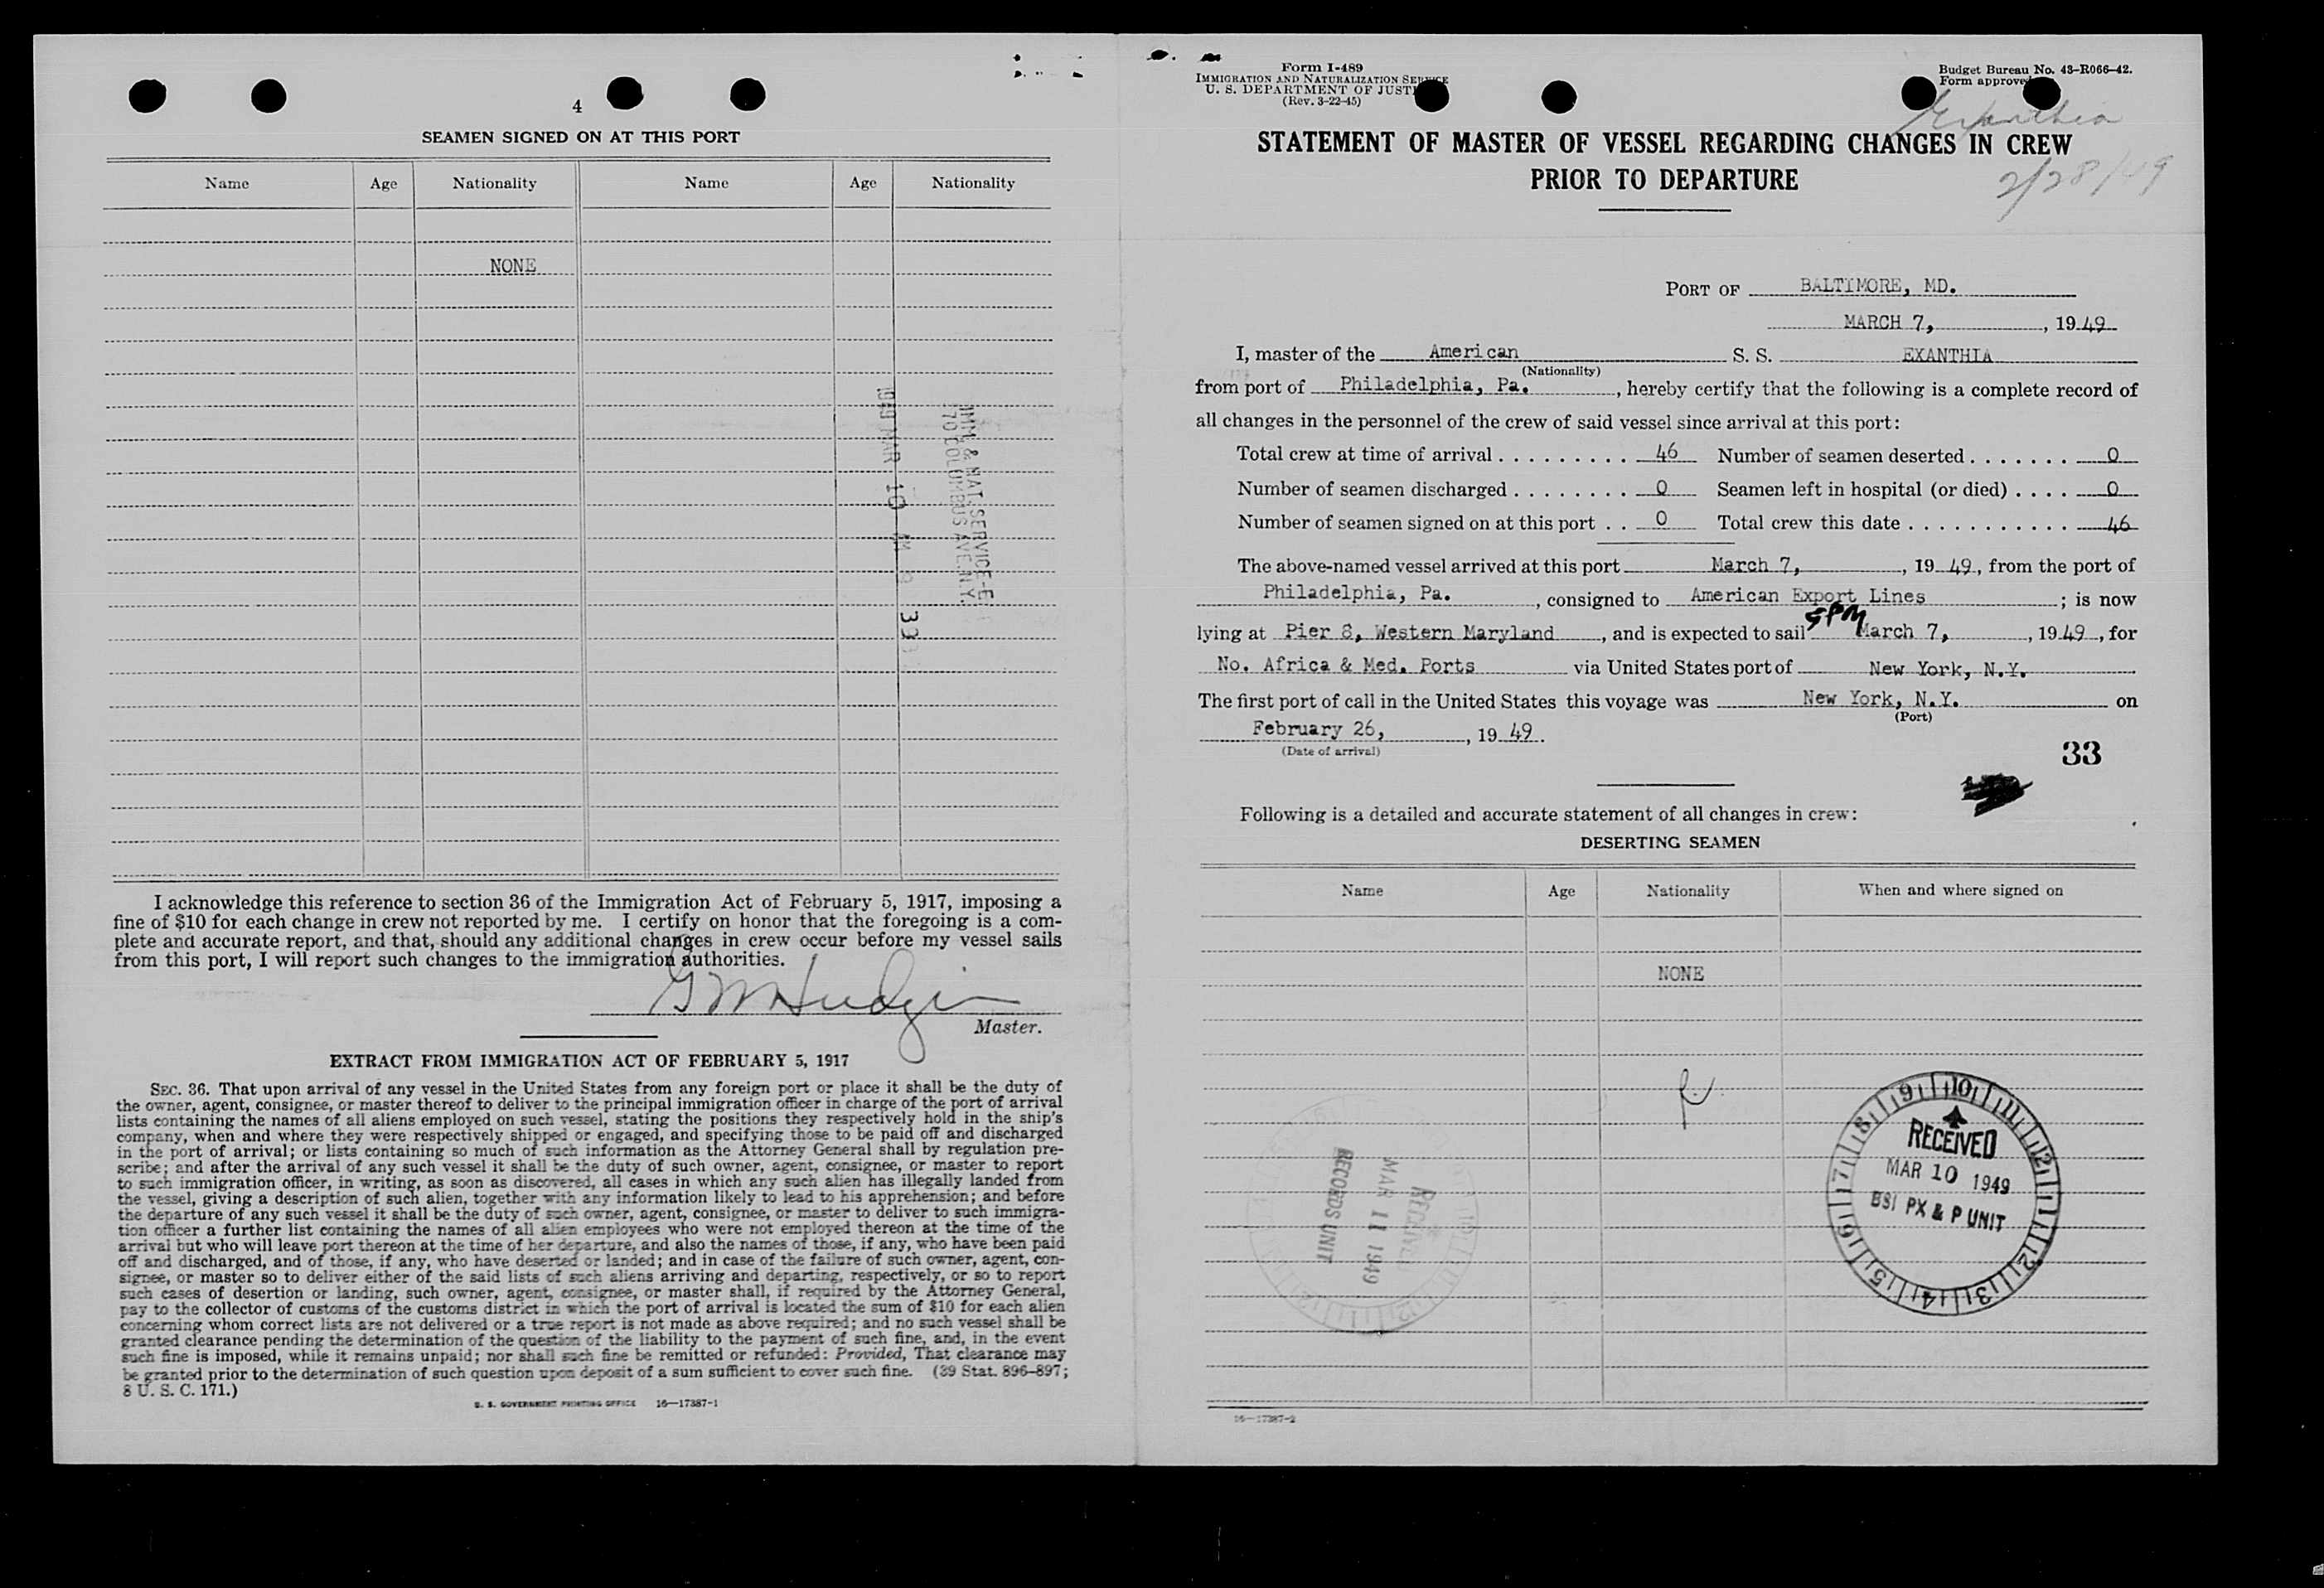 4
SEAMEN SIGNED ON AT THIS PORT
Name Age Nationality Name Age Nationality
NONE
IMM. & NAT. SERVICE-E
70 COLUMBUS AVE. N.Y.
1949 MAR 10 AM 9 33
I acknowledge this reference to section 36 of the Immigration Act of February 5, 1917, imposing a
fine of $10 for each change in crew not reported by me. I certify on honor that the foregoing is a com-
plete and accurate report, and that, should any additional changes in crew occur before my vessel sails
from this port, I will report such changes to the immigration authorities.
G M Hudgin
Master.
EXTRACT FROM IMMIGRATION ACT OF FEBRUARY 5, 1917
SEC. 36. That upon arrival of any vessel in the United States from any foreign port or place it shall be the duty of
the owner, agent, consignee, or master thereof to deliver to the principal immigration officer in charge of the port of arrival
lists containing the names of all aliens employed on such vessel, stating the positions they respectively hold in the ship's
company, when and where they were respectively shipped or engaged, and specifying those to be paid off and discharged
in the port of arrival; or lists containing so much of such information as the Attorney General shall by regulation pre-
scribe; and after the arrival of any such vessel it shall be the duty of such owner, agent, consignee, or master to report
to such immigration officer, in writing, as soon as discovered, all cases in which any such alien has illegally landed from
the vessel, giving a description of such alien, together with any information likely to lead to his apprehension; and before
the departure of any such vessel it shall be the duty of such owner, agent, consignee, or master to deliver to such immigra-
tion officer a further list containing the names of all alien employees who were not employed thereon at the time of the
arrival but who will leave port thereon at the time of her departure, and also the names of those, if any, who have been paid
off and discharged, and of those, if any, who have deserted or landed; and in case of the failure of such owner, agent, con-
signee, or master so to deliver either of the said lists of such aliens arriving and departing, respectively, or so to report
such cases of desertion or landing, such owner, agent, consignee, or master shall, if required by the Attorney General,
pay to the collector of customs of the customs district in which the port of arrival is located the sum of $10 for each alien
concerning whom correct lists are not delivered or a true report is not made as above required; and no such vessel shall be
granted clearance pending the determination of the question of the liability to the payment of such fine, and, in the event
such fine is imposed, while it remains unpaid; nor shall such fine be remitted or refunded: Provided, That clearance may
be granted prior to the determination of such question upon deposit of a sum sufficient to cover such fine. (39 Stat. 896–897;
8 U. S. C. 171.)
U. S. GOVERNMENT PRINTING OFFICE 16—17387-1
Form I-489
IMMIGRATION AND NATURALIZATION SERVICE
U. S. DEPARTMENT OF JUSTI
(Rev. 3-22-45)
Budget Bureau No. 43–R066–42.
Form approved
Exanthia
2/28/49
STATEMENT OF MASTER OF VESSEL REGARDING CHANGES IN CREW
PRIOR TO DEPARTURE
PORT OF BALTIMORE, MD.
MARCH 7, , 1949
I, master of the American S. S. EXANTHIA
(Nationality)
from port of Philadelphia, Pa. , hereby certify that the following is a complete record of
all changes in the personnel of the crew of said vessel since arrival at this port:
Total crew at time of arrival . . . . . . . . . 46 Number of seamen deserted . . . . . . . 0
Number of seamen discharged . . . . . . . . 0 Seamen left in hospital (or died) . . . . 0
Number of seamen signed on at this port . . 0 Total crew this date . . . . . . . . . . . 46
The above-named vessel arrived at this port March 7, , 19 49, from the port of
Philadelphia, Pa. , consigned to American Export Lines ; is now
lying at Pier 8, Western Maryland , and is expected to sail 5PM March 7, , 1949 , for
No. Africa & Med. Ports via United States port of New York, N.Y.
The first port of call in the United States this voyage was New York, N.Y. on
(Port)
February 26, , 19 49 .
(Date of arrival)
33
Following is a detailed and accurate statement of all changes in crew:
DESERTING SEAMEN
Name Age Nationality When and where signed on
NONE
RECEIVED
MAR 10 1949
BSI PX & P UNIT
RECEIVED
MAR 11 1949
RECORDS UNIT
16—17387-2